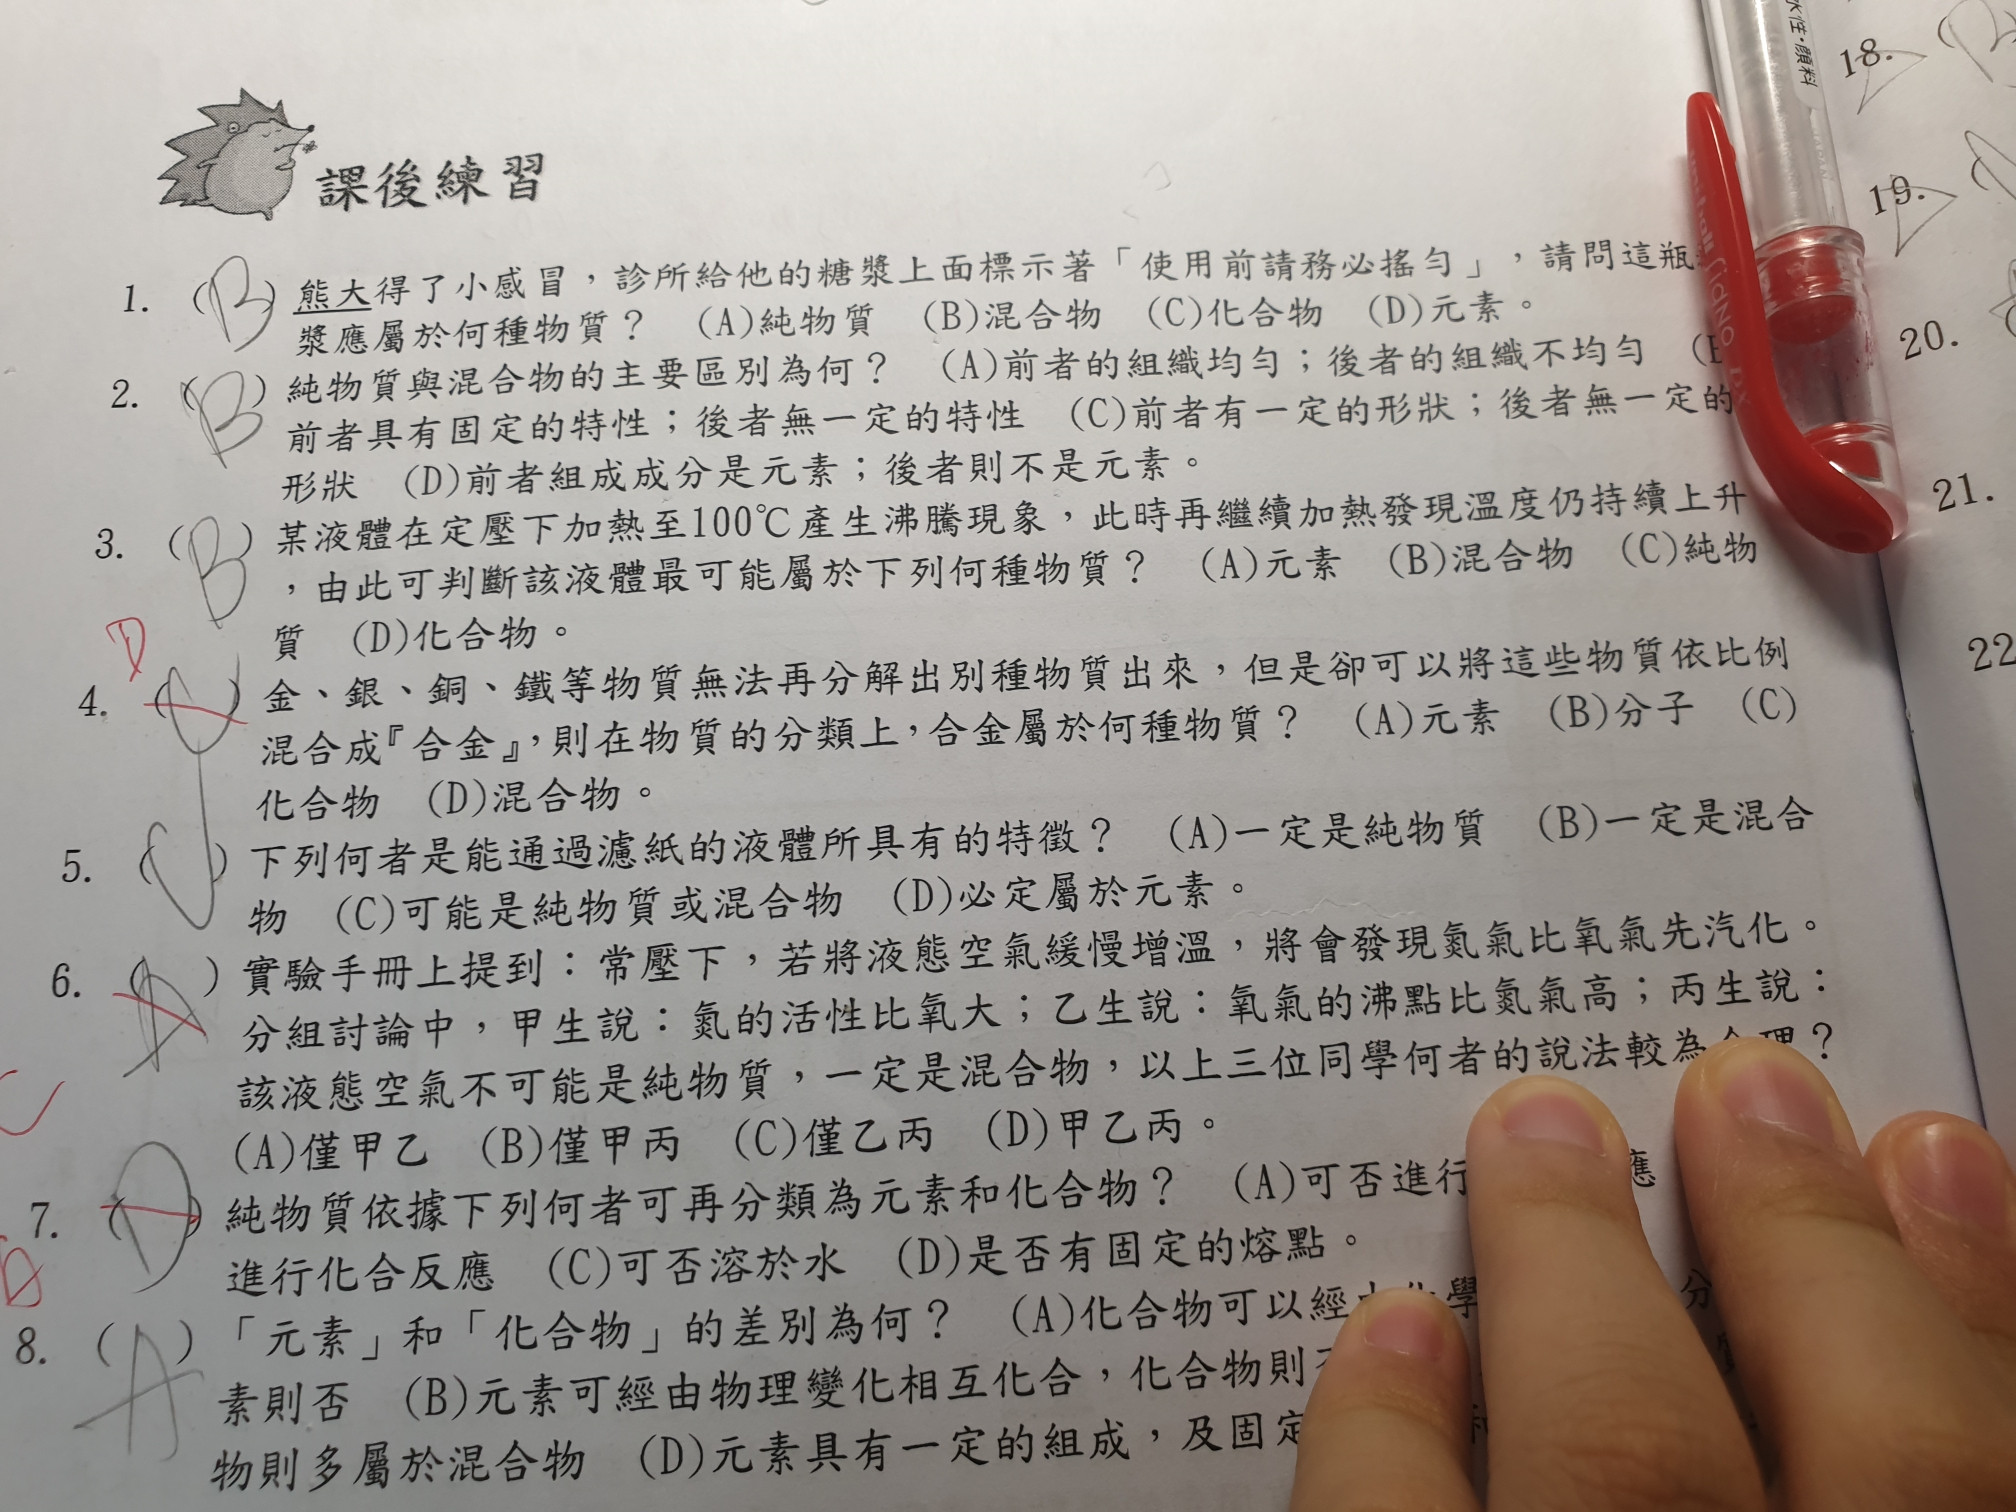 水性·顏料
課後練習
1. (B) 熊大得了小感冒，診所給他的糖漿上面標示著「使用前請務必搖勻」，請問這瓶
漿應屬於何種物質？ (A)純物質 (B)混合物 (C)化合物 (D)元素。
2. (B) 純物質與混合物的主要區別為何？ (A)前者的組織均勻；後者的組織不均勻
前者具有固定的特性；後者無一定的特性 (C)前者有一定的形狀；後者無一定的
形狀 (D)前者組成成分是元素；後者則不是元素。
3. (B) 某液體在定壓下加熱至100℃產生沸騰現象，此時再繼續加熱發現溫度仍持續上升
，由此可判斷該液體最可能屬於下列何種物質？ (A)元素 (B)混合物 (C)純物
質 (D)化合物。
D
4. ( ) 金、銀、銅、鐵等物質無法再分解出別種物質出來，但是卻可以將這些物質依比例
混合成『合金』，則在物質的分類上，合金屬於何種物質？ (A)元素 (B)分子 (C)
化合物 (D)混合物。
5. ( ) 下列何者是能通過濾紙的液體所具有的特徵？ (A)一定是純物質 (B)一定是混合
物 (C)可能是純物質或混合物 (D)必定屬於元素。
6. ( ) 實驗手冊上提到：常壓下，若將液態空氣緩慢增溫，將會發現氮氣比氧氣先汽化。
分組討論中，甲生說：氮的活性比氧大；乙生說：氧氣的沸點比氮氣高；丙生說：
該液態空氣不可能是純物質，一定是混合物，以上三位同學何者的說法較為合理？
C
(A)僅甲乙 (B)僅甲丙 (C)僅乙丙 (D)甲乙丙。
7. (D) 純物質依據下列何者可再分類為元素和化合物？ (A)可否進行 應
進行化合反應 (C)可否溶於水 (D)是否有固定的熔點。
8. (A) 「元素」和「化合物」的差別為何？ (A)化合物可以經由化學 分
素則否 (B)元素可經由物理變化相互化合，化合物則否
物則多屬於混合物 (D)元素具有一定的組成，及固定
uni-ball SIGNO DX
18. (B
19.
20.
21.
22